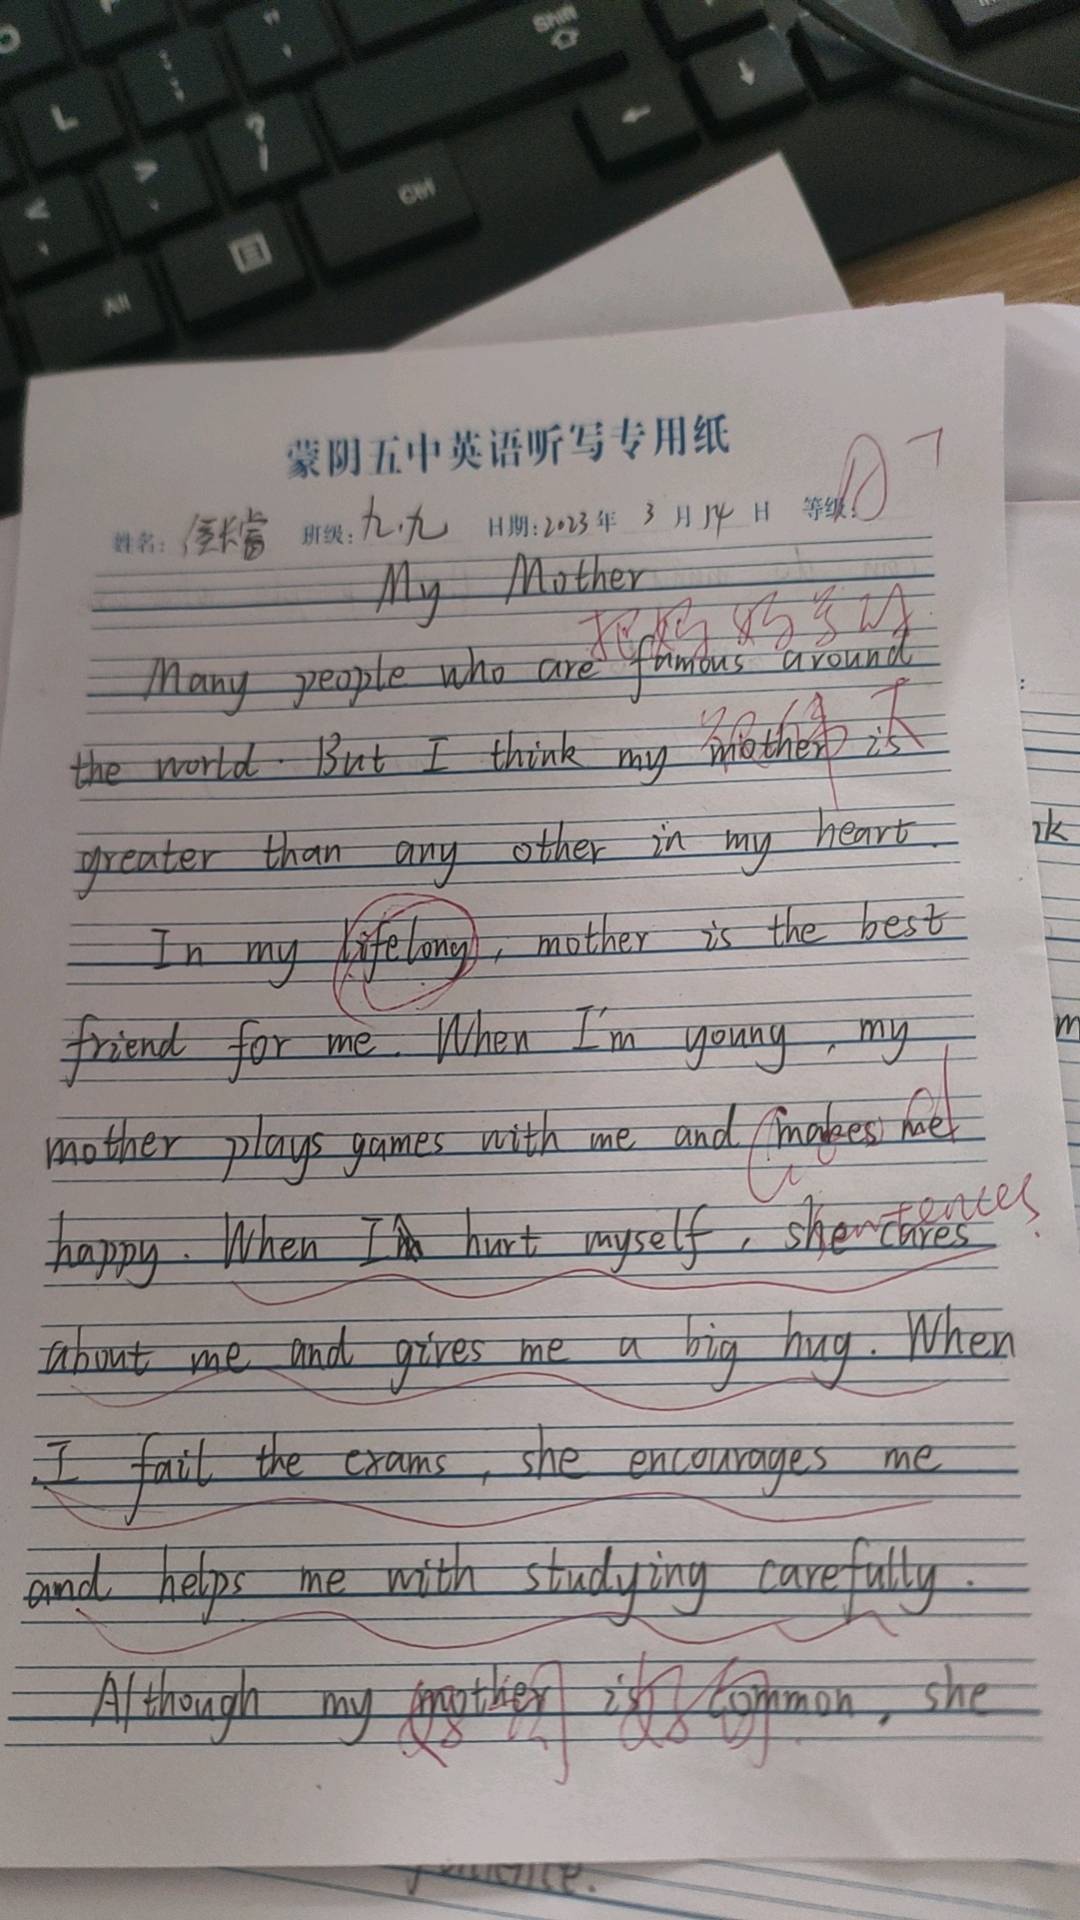 Shift
L
?
Ctrl
Alt
蒙阴五中英语听写专用纸
姓名: 班级: 九.九 日期: 2023年 3月14日 等级: 10
My Mother
把妈妈写的
Many people who are famous around
the world. But I think my mother is
greater than any other in my heart.
In my lifelong, mother is the best
friend for me. When I'm young, my
mother plays games with me and makes me
happy. When I hurt myself, she cares
about me and gives me a big hug. When
I fail the exams, she encourages me
and helps me with studying carefully.
Although my mother is common, she